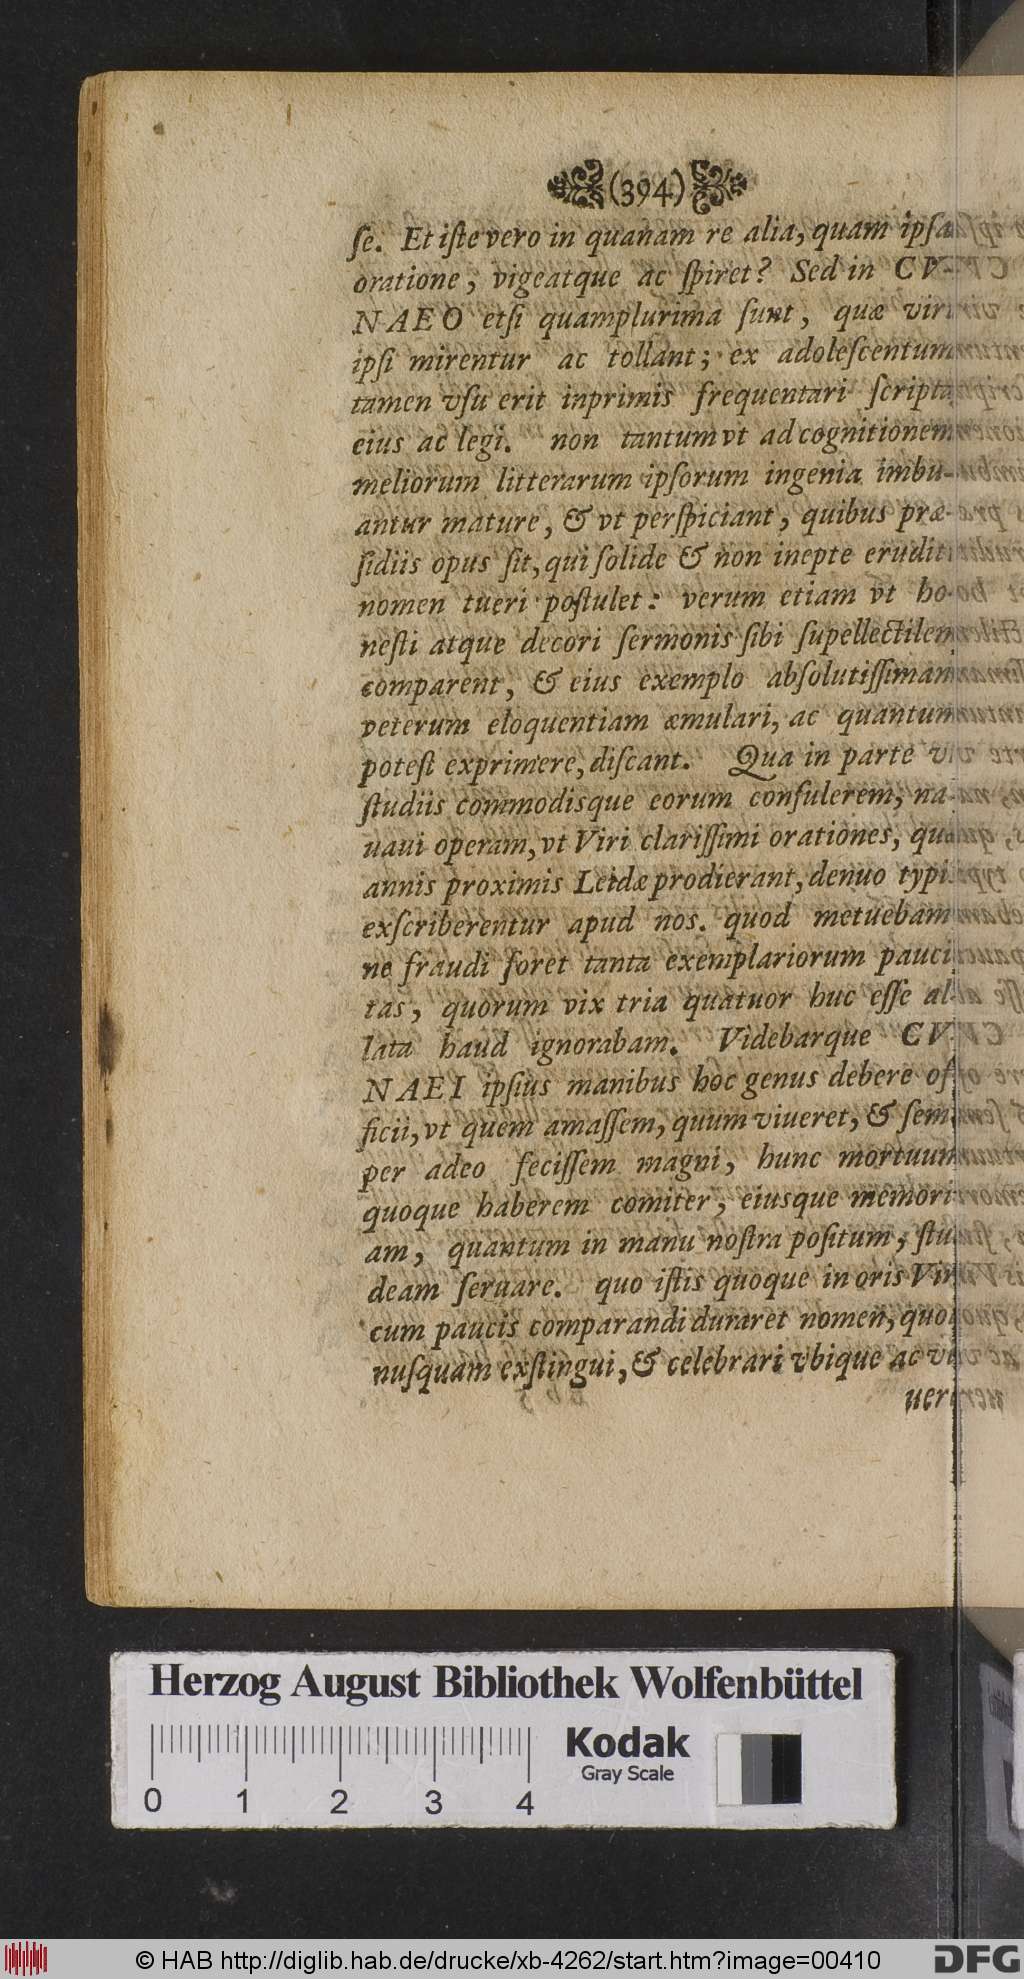 (394)
ſe. Et iſte vero in quanam re alia, quam ipſa
oratione, vigeatque ac ſpiret? Sed in CV-
NAEO etſi quamplurima ſunt, quæ viri
ipſi mirentur ac tollant; ex adoleſcentum
tamen vſu erit inprimis frequentari ſcripta
eius ac legi. non tantum vt ad cognitionem
meliorum litterarum ipſorum ingenia imbu-
antur mature, & vt perſpiciant, quibus præ-
ſidiis opus ſit, qui ſolide & non inepte eruditi
nomen tueri poſtulet: verum etiam vt ho-
neſti atque decori ſermonis ſibi ſupellectilem
comparent, & eius exemplo abſolutiſſimam
veterum eloquentiam æmulari, ac quantum
poteſt exprimere, diſcant. Qua in parte vt
ſtudiis commodisque eorum conſulerem, na-
uaui operam, vt Viri clariſſimi orationes, quæ
annis proximis Leidæ prodierant, denuo typis
exſcriberentur apud nos. quod metuebam
ne fraudi foret tanta exemplariorum pauci-
tas, quorum vix tria quatuor huc eſſe al-
lata haud ignorabam. Videbarque CV-
NAEI ipſius manibus hoc genus debere of-
ficii, vt quem amaſſem, quum viueret, & ſem-
per adeo feciſſem magni, hunc mortuum
quoque haberem comiter, eiusque memori-
am, quantum in manu noſtra poſitum, ſtu-
deam ſeruare. quo iſtis quoque in oris Viri
cum paucis comparandi duraret nomen, quod
nuſquam exſtingui, & celebrari vbique ac ve-
uer
Herzog August Bibliothek Wolfenbüttel
0 1 2 3 4
Kodak
Gray Scale
© HAB http://diglib.hab.de/drucke/xb-4262/start.htm?image=00410
DFG